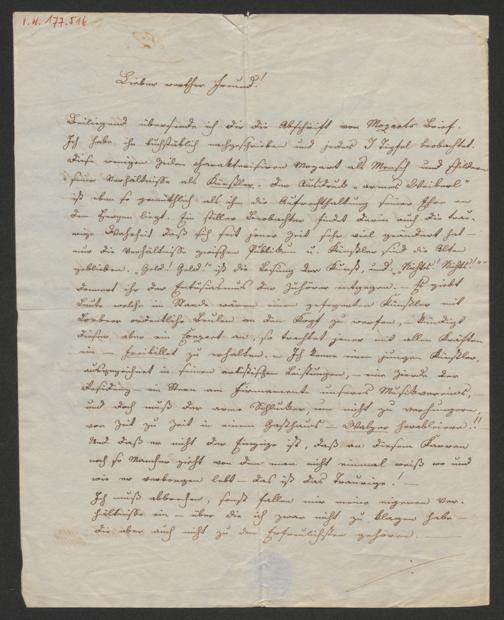 I.N. 177.516
Lieber werther Freund!
Beiliegend übersende ich Dir die Abschrift von Mozarts Brief.
Ich habe ihn buchstäblich nachgeschrieben und jedes I Tüpfel beobachtet.
Diese wenigen Zeilen charakterisiren Mozart als Mensch und
seine Verhältnisse als Künstler. Der Ausdruck "armes
ist eben so gemüthlich als ihm die Aufrechthaltung seiner Ehre an
dem Herzen liegt. Ein stiller Beobachter findet darin auch die trau-
rige Wahrheit daß sich seit jener Zeit sehr viel geändert hat –
nur die Verhältnisse zwischen Publikum u. Künstler sind die Alten
geblieben. "Geld! Geld!" ist die Losung der Kunst, und "Nichts! Nichts!" –
donnert ihr der Enthusiasmus der Zuhörer entgegen. – Es giebt
Leute welche im Stande wären einem gefeyerten Künstler mit
Lorbeer ordentliche Beulen an den Kopf zu werfen, – kündigt
dieser aber ein Konzert an, so trachtet jener mit allen Kräften
ein – Freibillet zu erhalten. – Ich kenne einen jungen Künstler,
ausgezeichnet in seinen artistischen Leistungen, – eine Zierde der
Residenz – ein Stern am Firmament unseres Musikvereins,
und doch muß der arme Schlucker, um nicht zu verhungern
von Zeit zu Zeit in einem Gasthaus – Walzer herableiern!!
Und daß er nicht der Einzige ist, daß an diesem Karren
noch so Mancher zieht von dem man nicht einmal weiß wo und
wie er verborgen lebt – das ist das Traurige! –
Ich muß abbrechen, sonst fallen mir meine eigenen Ver-
hältnisse ein – über die ich zwar nicht zu klagen habe –
die aber auch nicht zu den Erfreulichsten gehören. –